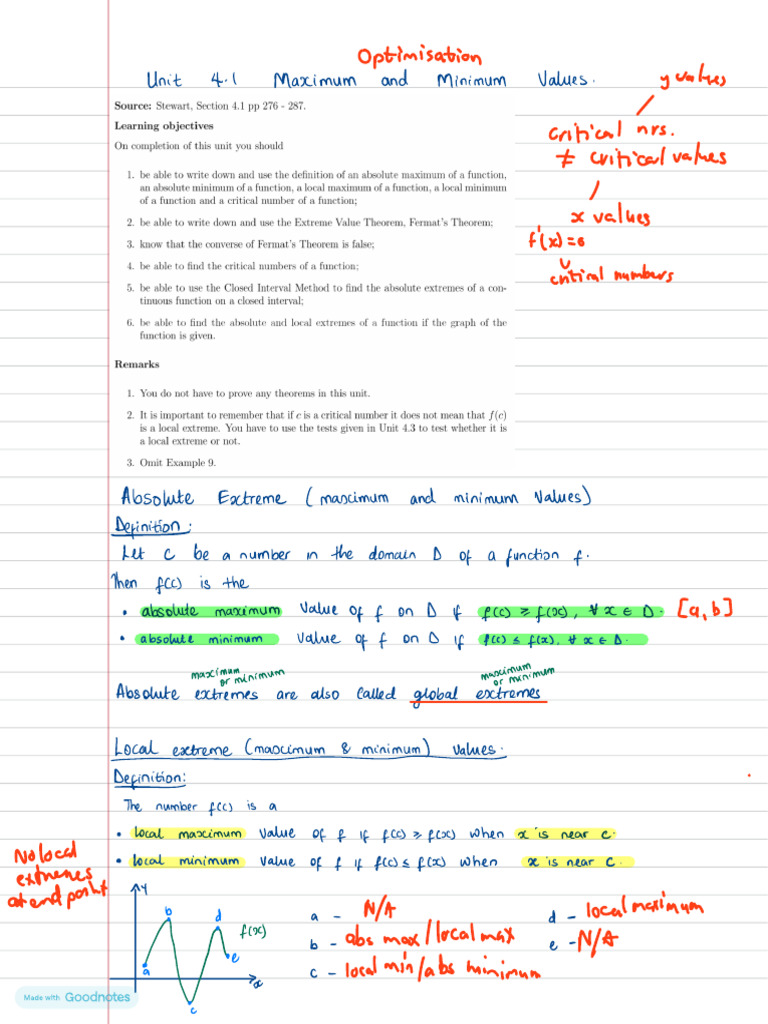 Optimisation
Unit 4.1 Maximum and Minimum Values.
y values
critical nrs.
≠ critical values
x values
f'(x)=0
critical numbers
Source: Stewart, Section 4.1 pp 276 - 287.
Learning objectives
On completion of this unit you should
1. be able to write down and use the definition of an absolute maximum of a function,
an absolute minimum of a function, a local maximum of a function, a local minimum
of a function and a critical number of a function;
2. be able to write down and use the Extreme Value Theorem, Fermat's Theorem;
3. know that the converse of Fermat's Theorem is false;
4. be able to find the critical numbers of a function;
5. be able to use the Closed Interval Method to find the absolute extremes of a con-
tinuous function on a closed interval;
6. be able to find the absolute and local extremes of a function if the graph of the
function is given.
Remarks
1. You do not have to prove any theorems in this unit.
2. It is important to remember that if c is a critical number it does not mean that f(c)
is a local extreme. You have to use the tests given in Unit 4.3 to test whether it is
a local extreme or not.
3. Omit Example 9.
Absolute Extreme (maximum and minimum Values)
Definition:
Let C be a number in the domain D of a function f.
Then f(c) is the
• absolute maximum Value of f on D if f(c) ≥ f(x), ∀ x ∈ D. [a,b]
• absolute minimum Value of f on D if f(c) ≤ f(x), ∀ x ∈ D.
maximum
or minimum
maximum
or minimum
Absolute extremes are also called global extremes
Local extreme (maximum & minimum) values.
Definition:
The number f(c) is a
• local maximum value of f if f(c) ≥ f(x) when x is near c.
• local minimum value of f if f(c) ≤ f(x) when x is near c.
No local
extremes
at end point
y
b
d
f(x)
a
e
x
c
a - N/A
b - abs max/local max
c - local min/abs minimum
d - local maximum
e - N/A
Made with Goodnotes